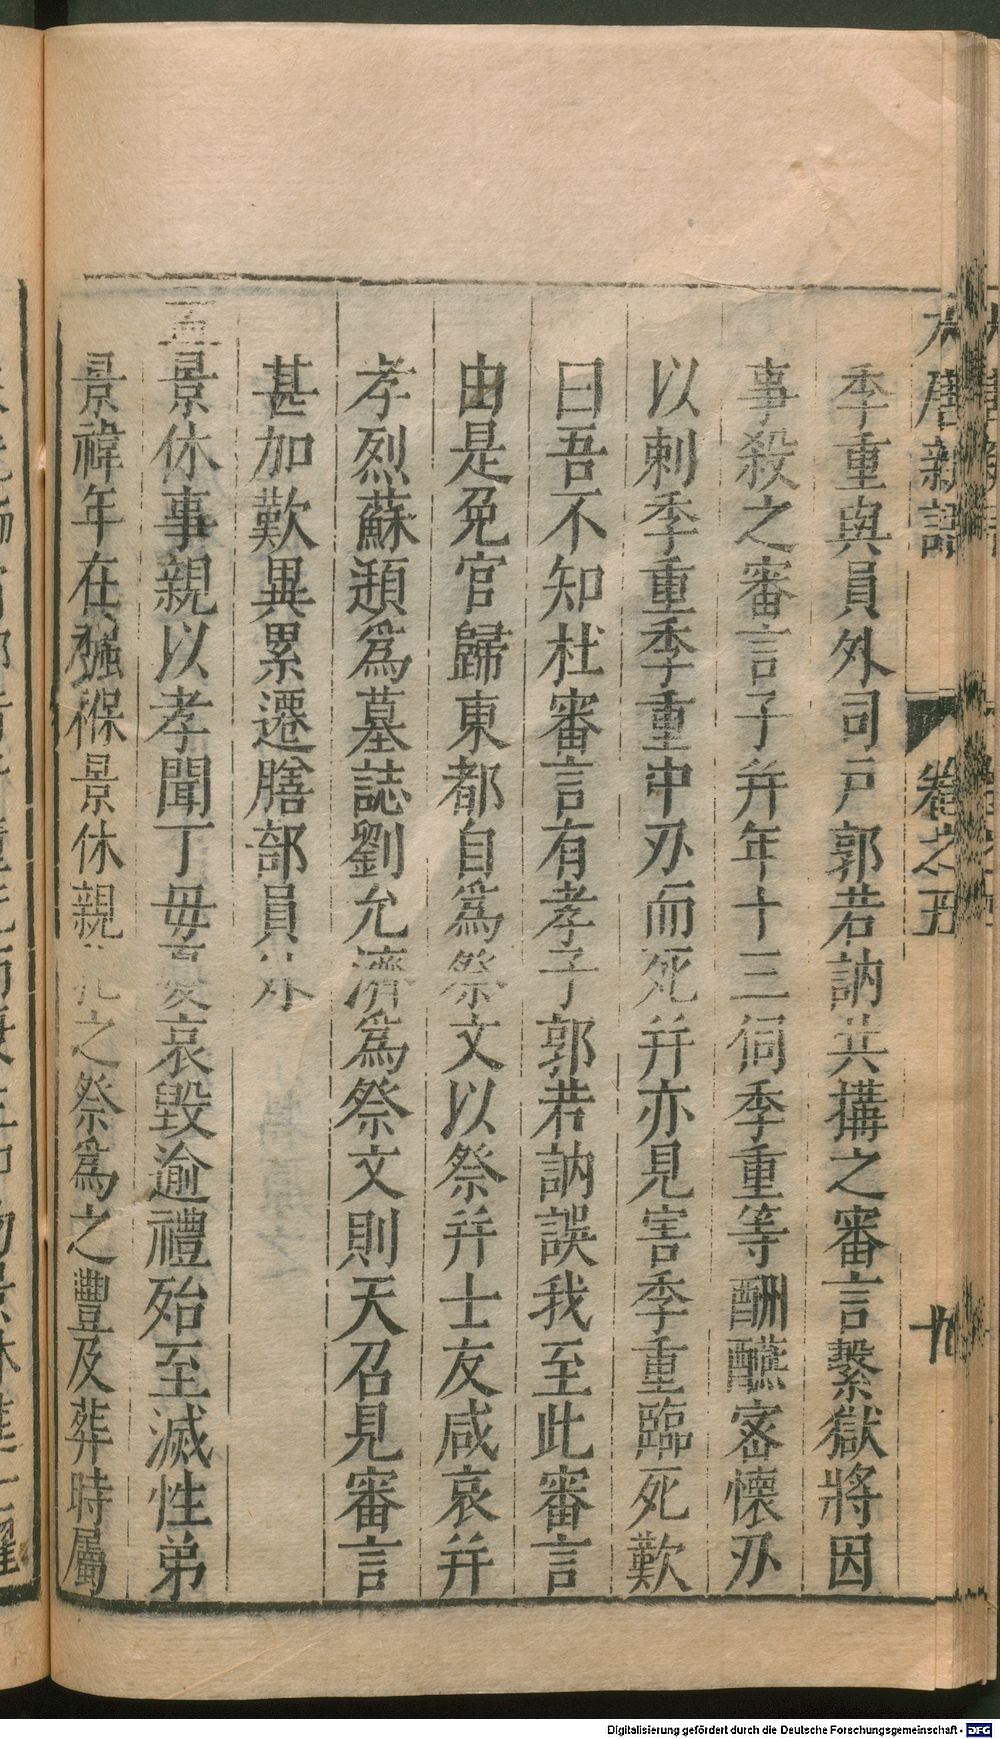 大唐新語 卷之五 九
季重與員外司戶郭若訥共搆之審言繫獄將因
事殺之審言子并年十三伺季重等酬醼密懷刃
以刺季重季重中刃而死并亦見害季重臨死歎
曰吾不知杜審言有孝子郭若訥誤我至此審言
由是免官歸東都自爲祭文以祭并士友咸哀并
孝烈蘇頲爲墓誌劉允濟爲祭文則天召見審言
甚加歎異累遷膳部員外
孟景休事親以孝聞丁母憂哀毀逾禮殆至滅性弟
景禕年在襁褓景休親乳之祭爲之豐及葬時屬
Digitalisierung gefördert durch die Deutsche Forschungsgemeinschaft - DFG